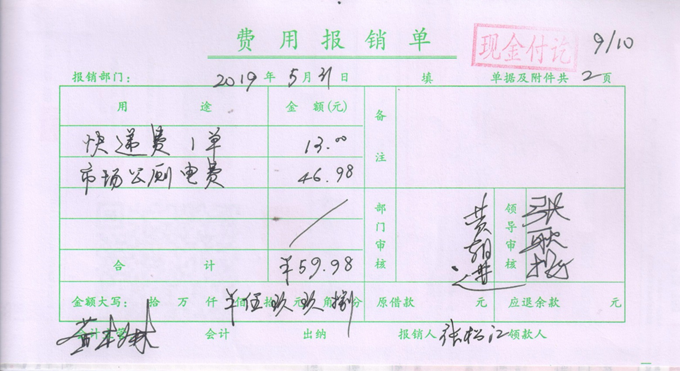 费用报销单
现金付讫
9/10
报销部门: 2019年5月31日 填 单据及附件共2页
用途 金额(元) 备注
快递费1单 13.00
市场公厕电费 46.98
部门审核 黄 领导审核 张
合计 ¥59.98
金额大写: 拾 万 仟 佰 伍拾玖元玖角捌分 原借款 元 应退余款 元
会计 出纳 报销人 张松江 领款人